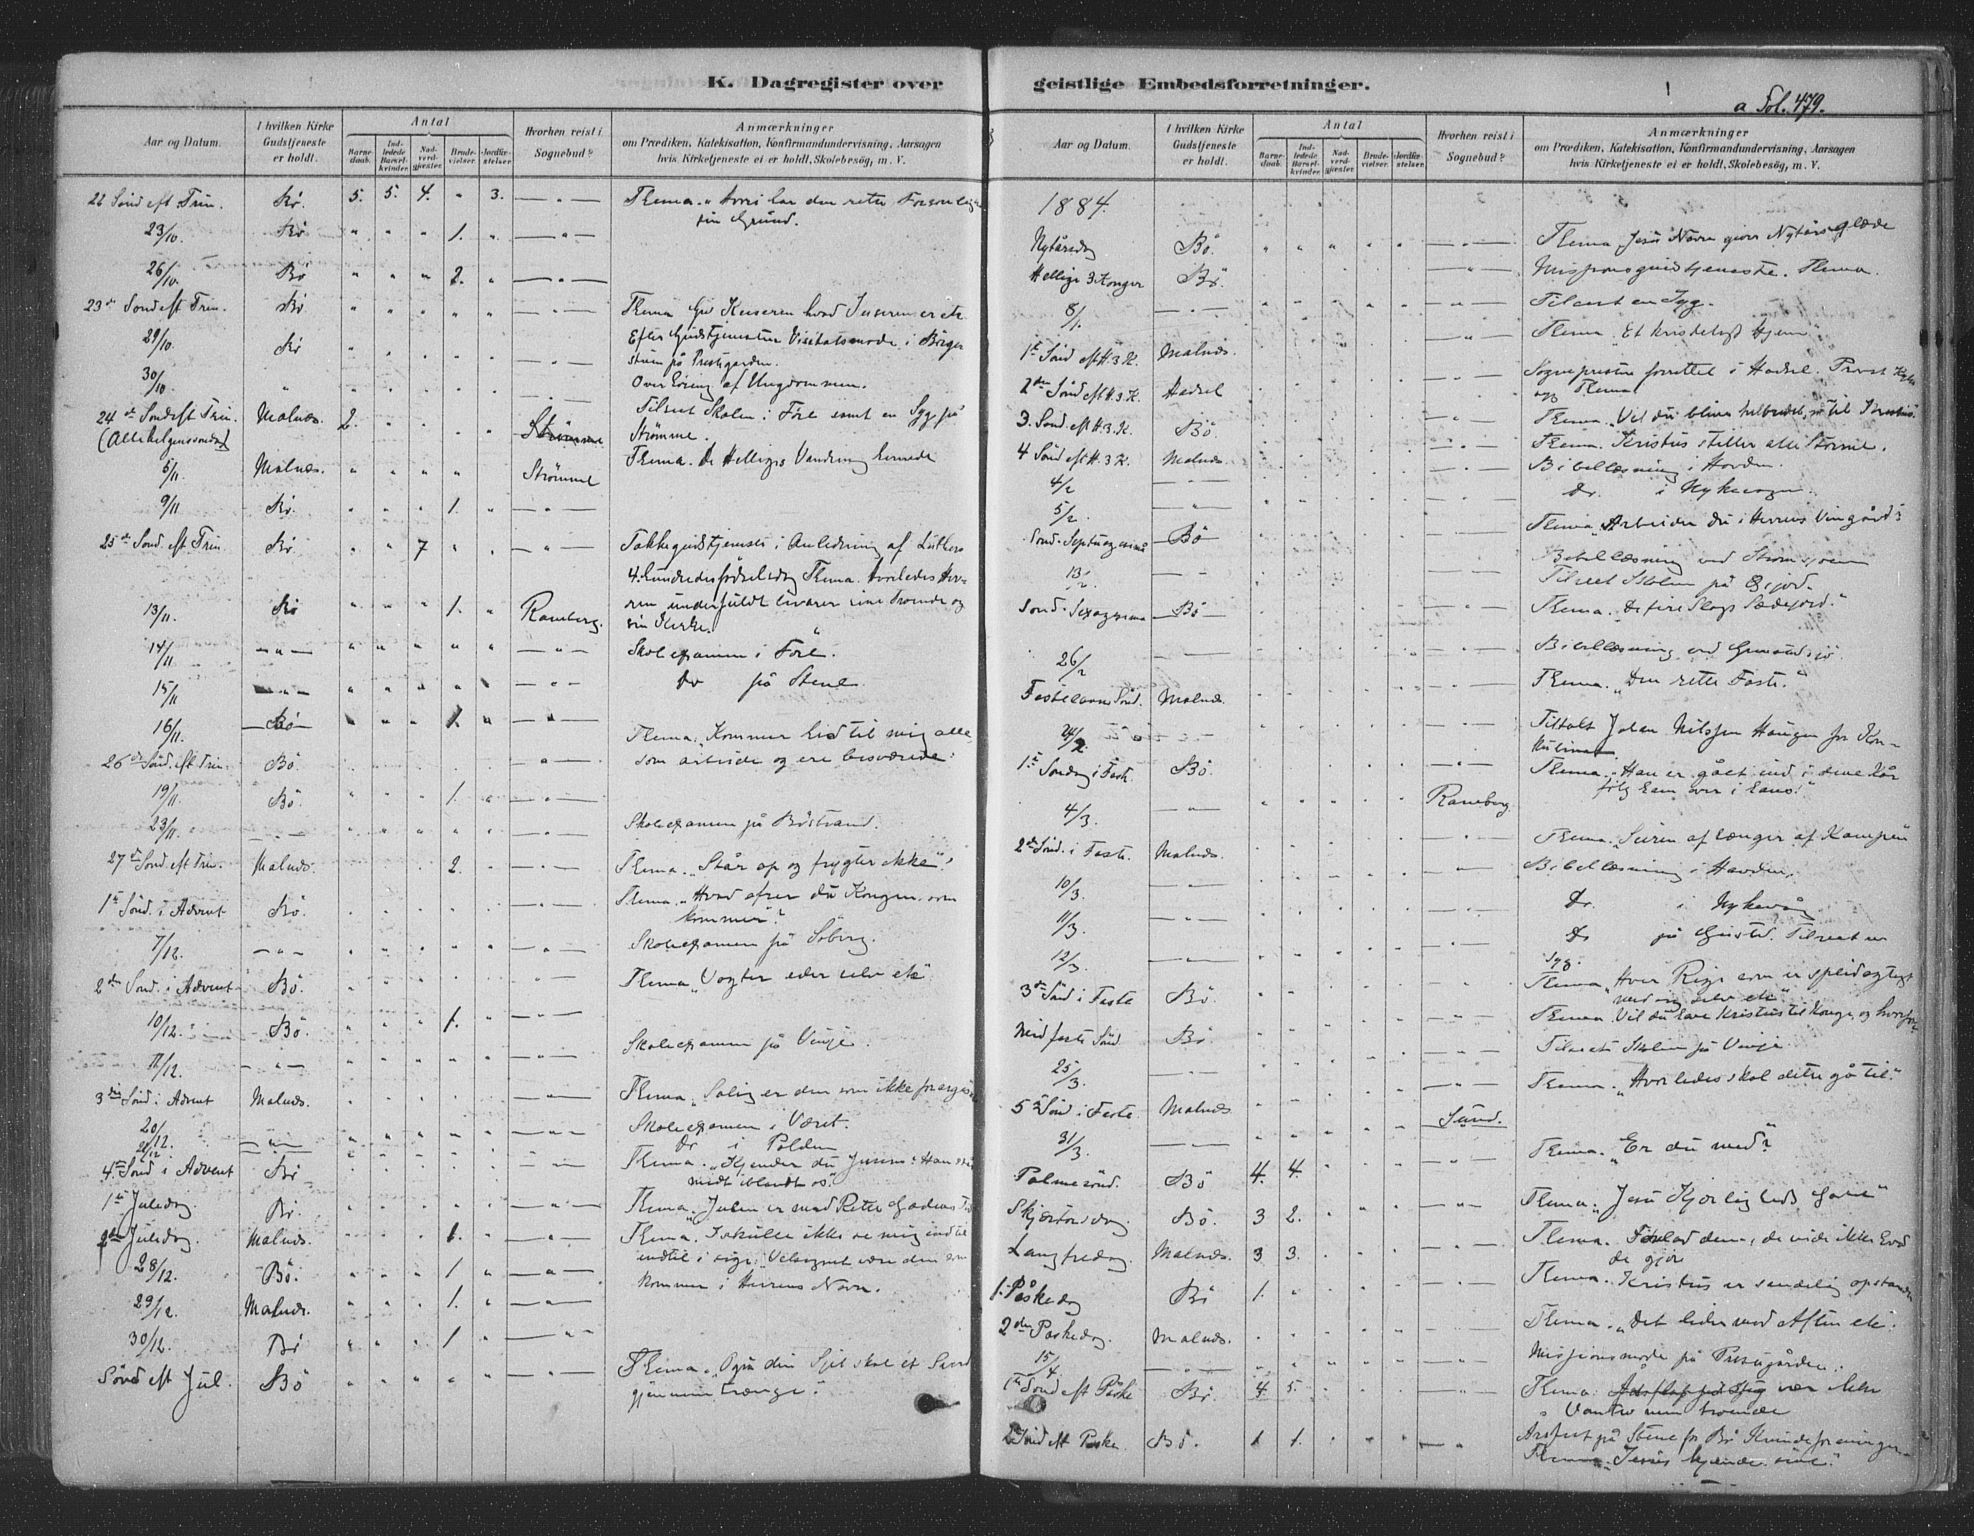 K. Dagregister over
Aar og Datum.
I hvilken Kirke Gudstjeneste er holdt.
Antal
Barnedaab.
Indledede Barselkvinder.
Nadverdgjester.
Brudevielser.
Jordfæstelser.
Hvorhen reist i Sognebud?
Anmærkninger
om Prædiken, Katekisation, Konfirmandundervisning, Aarsagen
hvis Kirketjeneste ei er holdt, Skolebesøg, m. V.
22 Sønd eft Trin. Bø. 5. 5. 4. " 3. — " —
sin Grund.
23/10 Bø " " " 1. " — " —
26/10 Bø " " " 2. " — " —
23de Sønd eft Trin. Bø " " " " " — " — Thema Giv Keiseren hvad Keiserens er etc
29/10 Bø Efter Gudstjenesten Visitatsmøde i
på Prestegarden.
30/10 " af Ungdommen.
24de Sønd eft Trin. Malnæs. 2. Strømme Tilseet Skolen i Føre samt en Syg på
(Allehelgenssondag) Strømme.
5/11 Malnæs. Strømme Thema. De Helliges Vandring
9/11 Bø. 1. — " —
25de Sønd. eft Trin. Bø. " " 7 " " — " — Takkegudstjeneste i Anledning af Luthers
4. hundredesfødselsdag Thema. Hvorledes Her-
13/11. Bø 1. Ramberg. ren underfuldt bevarer sine Troende og
sin Kirke.
14/11 — " — " " " " " — " — Skoleexamen i Føre.
15/11 — " — " " " " — " — Do på Stene.
16/11. — Bø — " " " 1. " — " —
26de Sønd. eft Trin. Bø. " Thema. "Kommer hid til mig alle,
som arbeide og ere besværede"
19/11. Bø " " " 1. " — " —
23/11. — " — Skoleexamen på Bøstrand.
27de Sønd eft Trin. Malnæs. 2. — " — Thema. "Står op og frygter ikke"!
1ste Sønd. i Advent Bø. — " — Thema. "Hvad du Kongen, som
kommer"?
7/12. — " — — " — Skoleexamen på
2den Sønd. i Advent Bø. — " Thema "Vogter eder selv etc"
10/12. Bø. 1. — " —
11/12. — " — — " — Skoleexamen på Vinje.
3die Sønd i Advent Malnæs. — " — Thema "Salig er den som ikke forarges
20/12. — " — — " — Skoleexamen i Været.
Do i Polden
4de Sønd i Advent Bø Thema. "Kjender du Jesus? Han står
midt iblandt os".
1ste Juledag. Bø. — " — Thema "Julen er med Rette Glædens Fest
2den Juledag. Malnæs. 1. — " — Thema. I skulle ikke se mig indtil
28/12. Bø. 1 — " — indtil i sige: Velsignet være den som
29/12. Malnæs. 1. — " — kommer i Herrens Navn.
30/12. Bø 1 — " —
Sønd eft Jul. Bø Thema. "Også din Sjel skal et Sværd
gjennemtrænge".
geistlige Embedsforretninger.
a Fol. 479.
Aar og Datum.
I hvilken Kirke Gudstjeneste er holdt.
Antal
Barnedaab.
Indledede Barselkvinder.
Nadverdgjester.
Brudevielser.
Jordfæstelser.
Hvorhen reist i Sognebud?
Anmærkninger
om Prædiken, Katekisation, Konfirmandundervisning, Aarsagen
hvis Kirketjeneste ei er holdt, Skolebesøg, m. V.
1884.
Nytårsdag Bø. — " — Thema "Jesu Navn giver Nytårsglæde
Hellige 3 Konger Bø. " Missionsgudstjeneste. Thema.
8/1. — " — — " — Tilseet en Syg.
Thema "Et kristeligt Hjem".
1ste Sønd eft H. 3. K. Malnæs. — " —
2den Sønd eft H. 3. K. Hadsel — " — Sognepresten forrettet i Hadsel. Provst
og Thema
3. Sønd. eft H. 3. K. Bø. — " — Thema. "Vil du blive helbredet, gå til Kristus.
4 Sønd eft H. 3 K. Malnæs. — " — Thema. Kristus stiller alle Storme.
4/2 — " — Bibellæsning i Hovden.
5/2. — " — Do. i
Sønd. Septuagesima Bø Thema "Arbeider du i Herrens Vingård?
13/2 Bibellæsning ved
Tilseet Skolen på
Sønd. Sexagesima Bø Thema. "De fire Slags Sædejord."
26/2 — — Bibellæsning ved
Fastelavns Sønd. Malnæs. Thema. "Den rette Faste."
Tiltalt Johan Nilssen Haugen for Kon-
kubinat
1ste Søndag i Faste Bø. — " — Thema. "Han er gået ind i dine Kår
følg ham over i hans!"
4/3. — " — Ramberg.
2den Sønd. i Faste. Malnæs. Thema. Seiren afhænger af Kampen
10/3. — " — Bibellæsning i Hovden.
11/3. — " — Do. i Nykvåg
12/3. — " — Do på Tilseet en
Syg.
3die Sønd i Faste Bø. Thema "Hver Rige som er splidagtigt
med sig selv etc"
Midfaste Sønd Bø. Thema. Vil du have Kristus til Konge, og hvorfor
25/3. — " — Tilseet Skolen på Vinje
5te Sønd i Faste. Malnæs Thema. "Hvorledes skal dette gå til."
31/3. — " — Sund.
Palmesønd. Bø 4. 4. Thema. "Er du med?"
Skjærtorsdag. Bø. 3 2. — " — Thema. "Jesu Kjærligheds Gave"
Langfredag. Malnæs. 3 3. — " — Thema. Forlad dem, de vide ikke hvad
de gjør
1. Påskedag Bø 1. " — " — Thema. Kristus er sandelig opstanden
2den Påskedag. Malnæs. Thema. "Det lider mod Aften etc.
15/4 — " — Missionsmøde på Prestgården.
1ste Sønd eft Påske Bø. 4. 5. — " — Thema. vær ikke
Vantro men troende
2 Sønd eft Påske Bø. 1 1. — " Årsfest på Steine for Bø Kvindeforeninger.
Thema. "Jesus kjender sine".